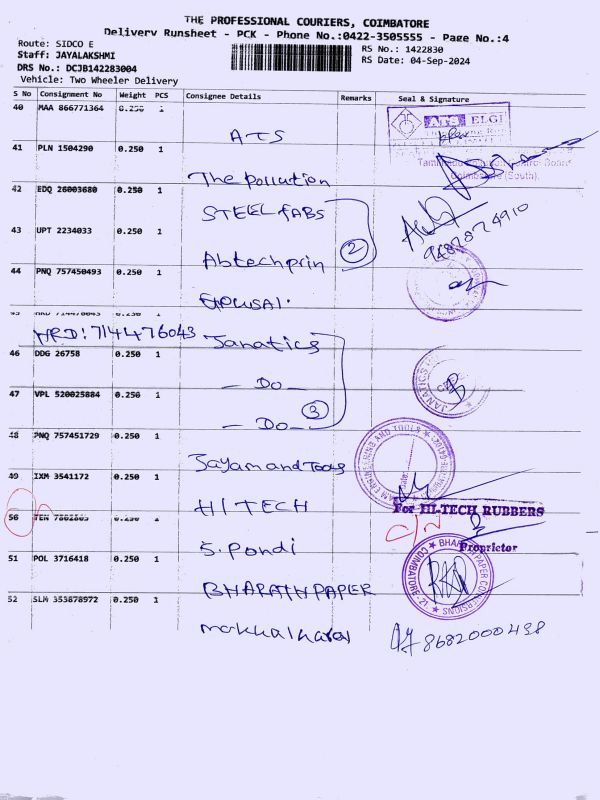 THE PROFESSIONAL COURIERS, COIMBATORE
Delivery Runsheet - PCK - Phone No.:0422-3505555 - Page No.:4
Route: SIDCO E
RS No.: 1422830
Staff: JAYALAKSHMI
RS Date: 04-Sep-2024
DRS No.: DCJB142283004
Vehicle: Two Wheeler Delivery
S No Consignment No Weight PCS Consignee Details Remarks Seal & Signature
40 MAA 866771364 0.250 1
ATS
ATS ELGI
41 PLN 1504290 0.250 1
The Pollution
Coimbatore (South).
42 EDQ 26003680 0.250 1
STEEL FABS
43 UPT 2234033 0.250 1
2
Abtechprin
44 PNQ 757450493 0.250 1
45 0.250 1
HRD: 714476043
Janatics
46 DDG 26758 0.250 1
- Do -
JANATICS
47 VPL 520025884 0.250 1
3
- Do -
48 PNQ 757451729 0.250 1
Jayam and Tools
ENGINEERING AND TOOLS
49 IXM 3541172 0.250 1
HITECH
For HI-TECH RUBBERS
50 0.250 1
S. Pondi
Proprietor
51 POL 3716418 0.250 1
BHARATH PAPER
BHARATH PAPER CONVERSIONS
COIMBATORE - 21
52 SLM 353878972 0.250 1
8682000498